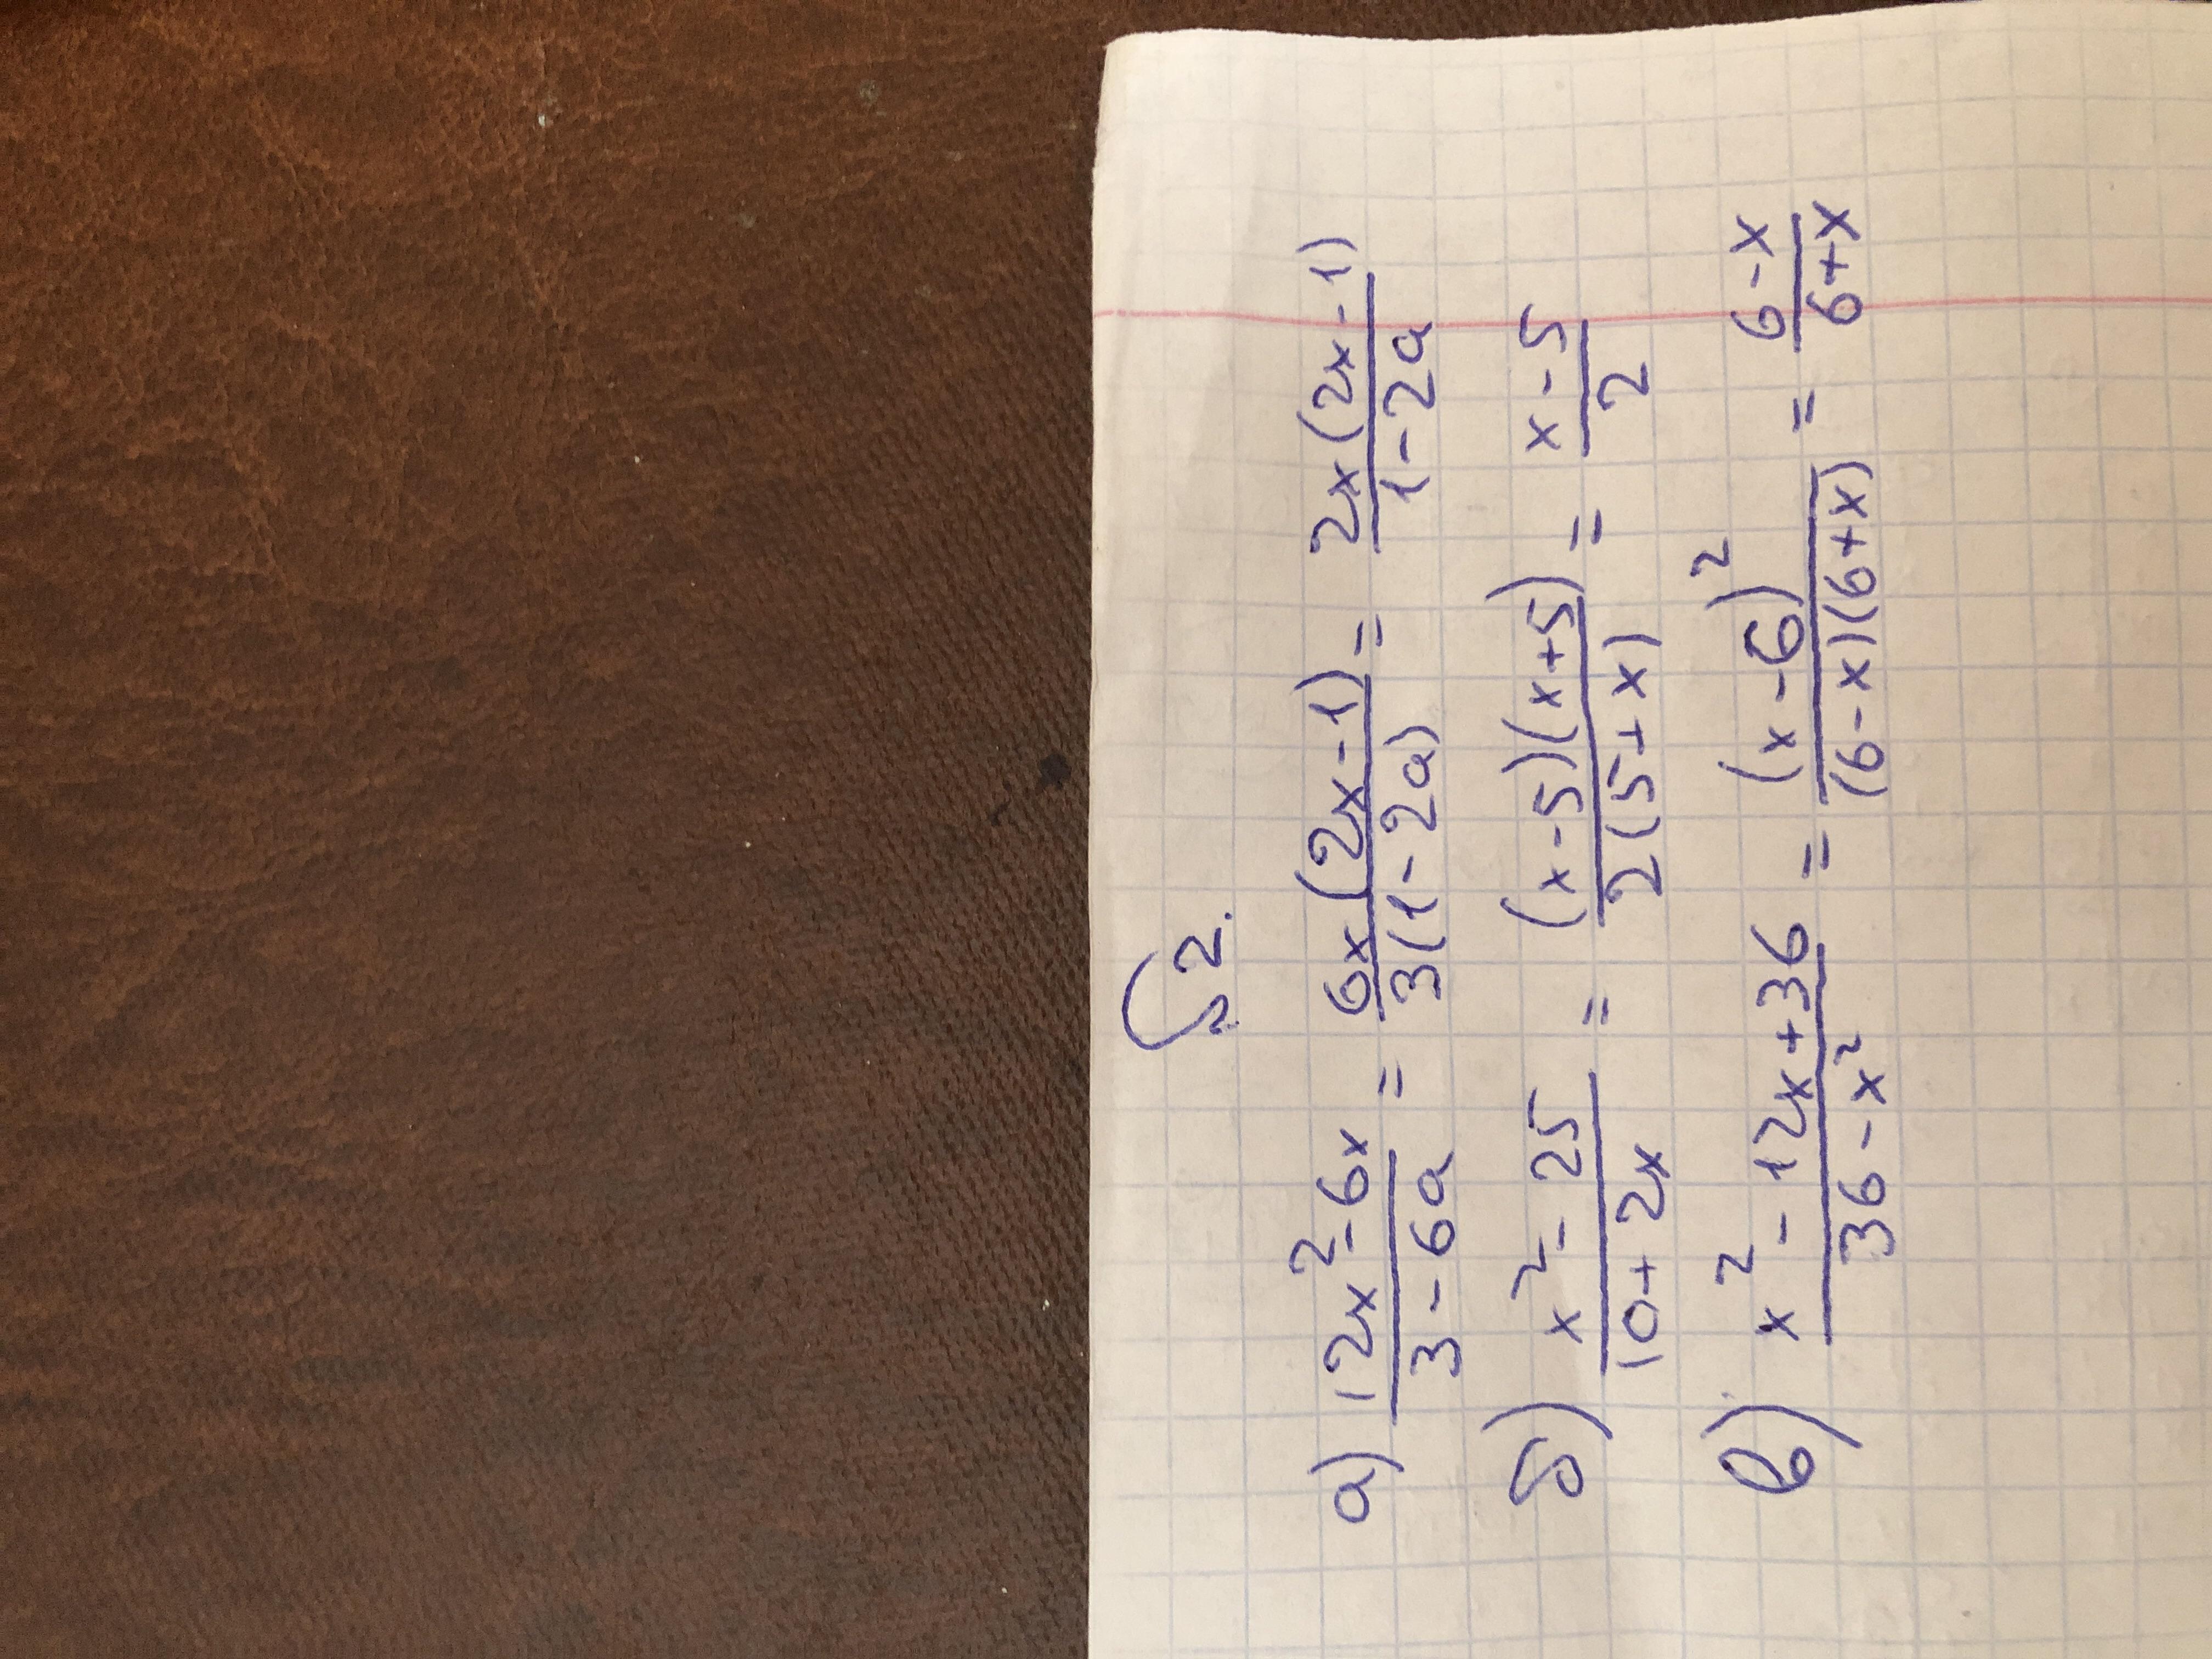 №2.
а) (12x²-6x)/(3-6a) = (6x(2x-1))/(3(1-2a)) = (2x(2x-1))/(1-2a)
б) (x²-25)/(10+2x) = ((x-5)(x+5))/(2(5+x)) = (x-5)/2
в) (x²-12x+36)/(36-x²) = (x-6)²/((6-x)(6+x)) = (6-x)/(6+x)